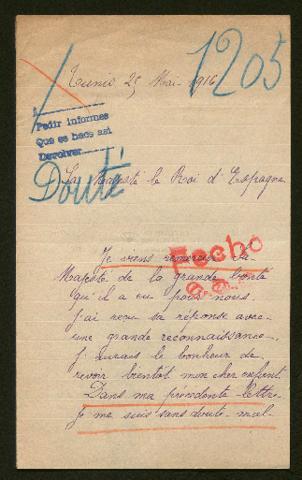 Tunis 25 Mai 1916
1205
Pedir informes
Que es hace asi
Devolver
Douté
Sa Majesté le Roi d'Espagne
Je viens remercier Sa
Fecho
Majesté de la grande bonté
qu'il a eu pour nous.
J'ai reçu sa réponse avec
une grande reconnaissance.
J'aurais le bonheur de
revoir bientôt mon cher enfant
Dans ma précédente lettre
je me suis sans doute mal